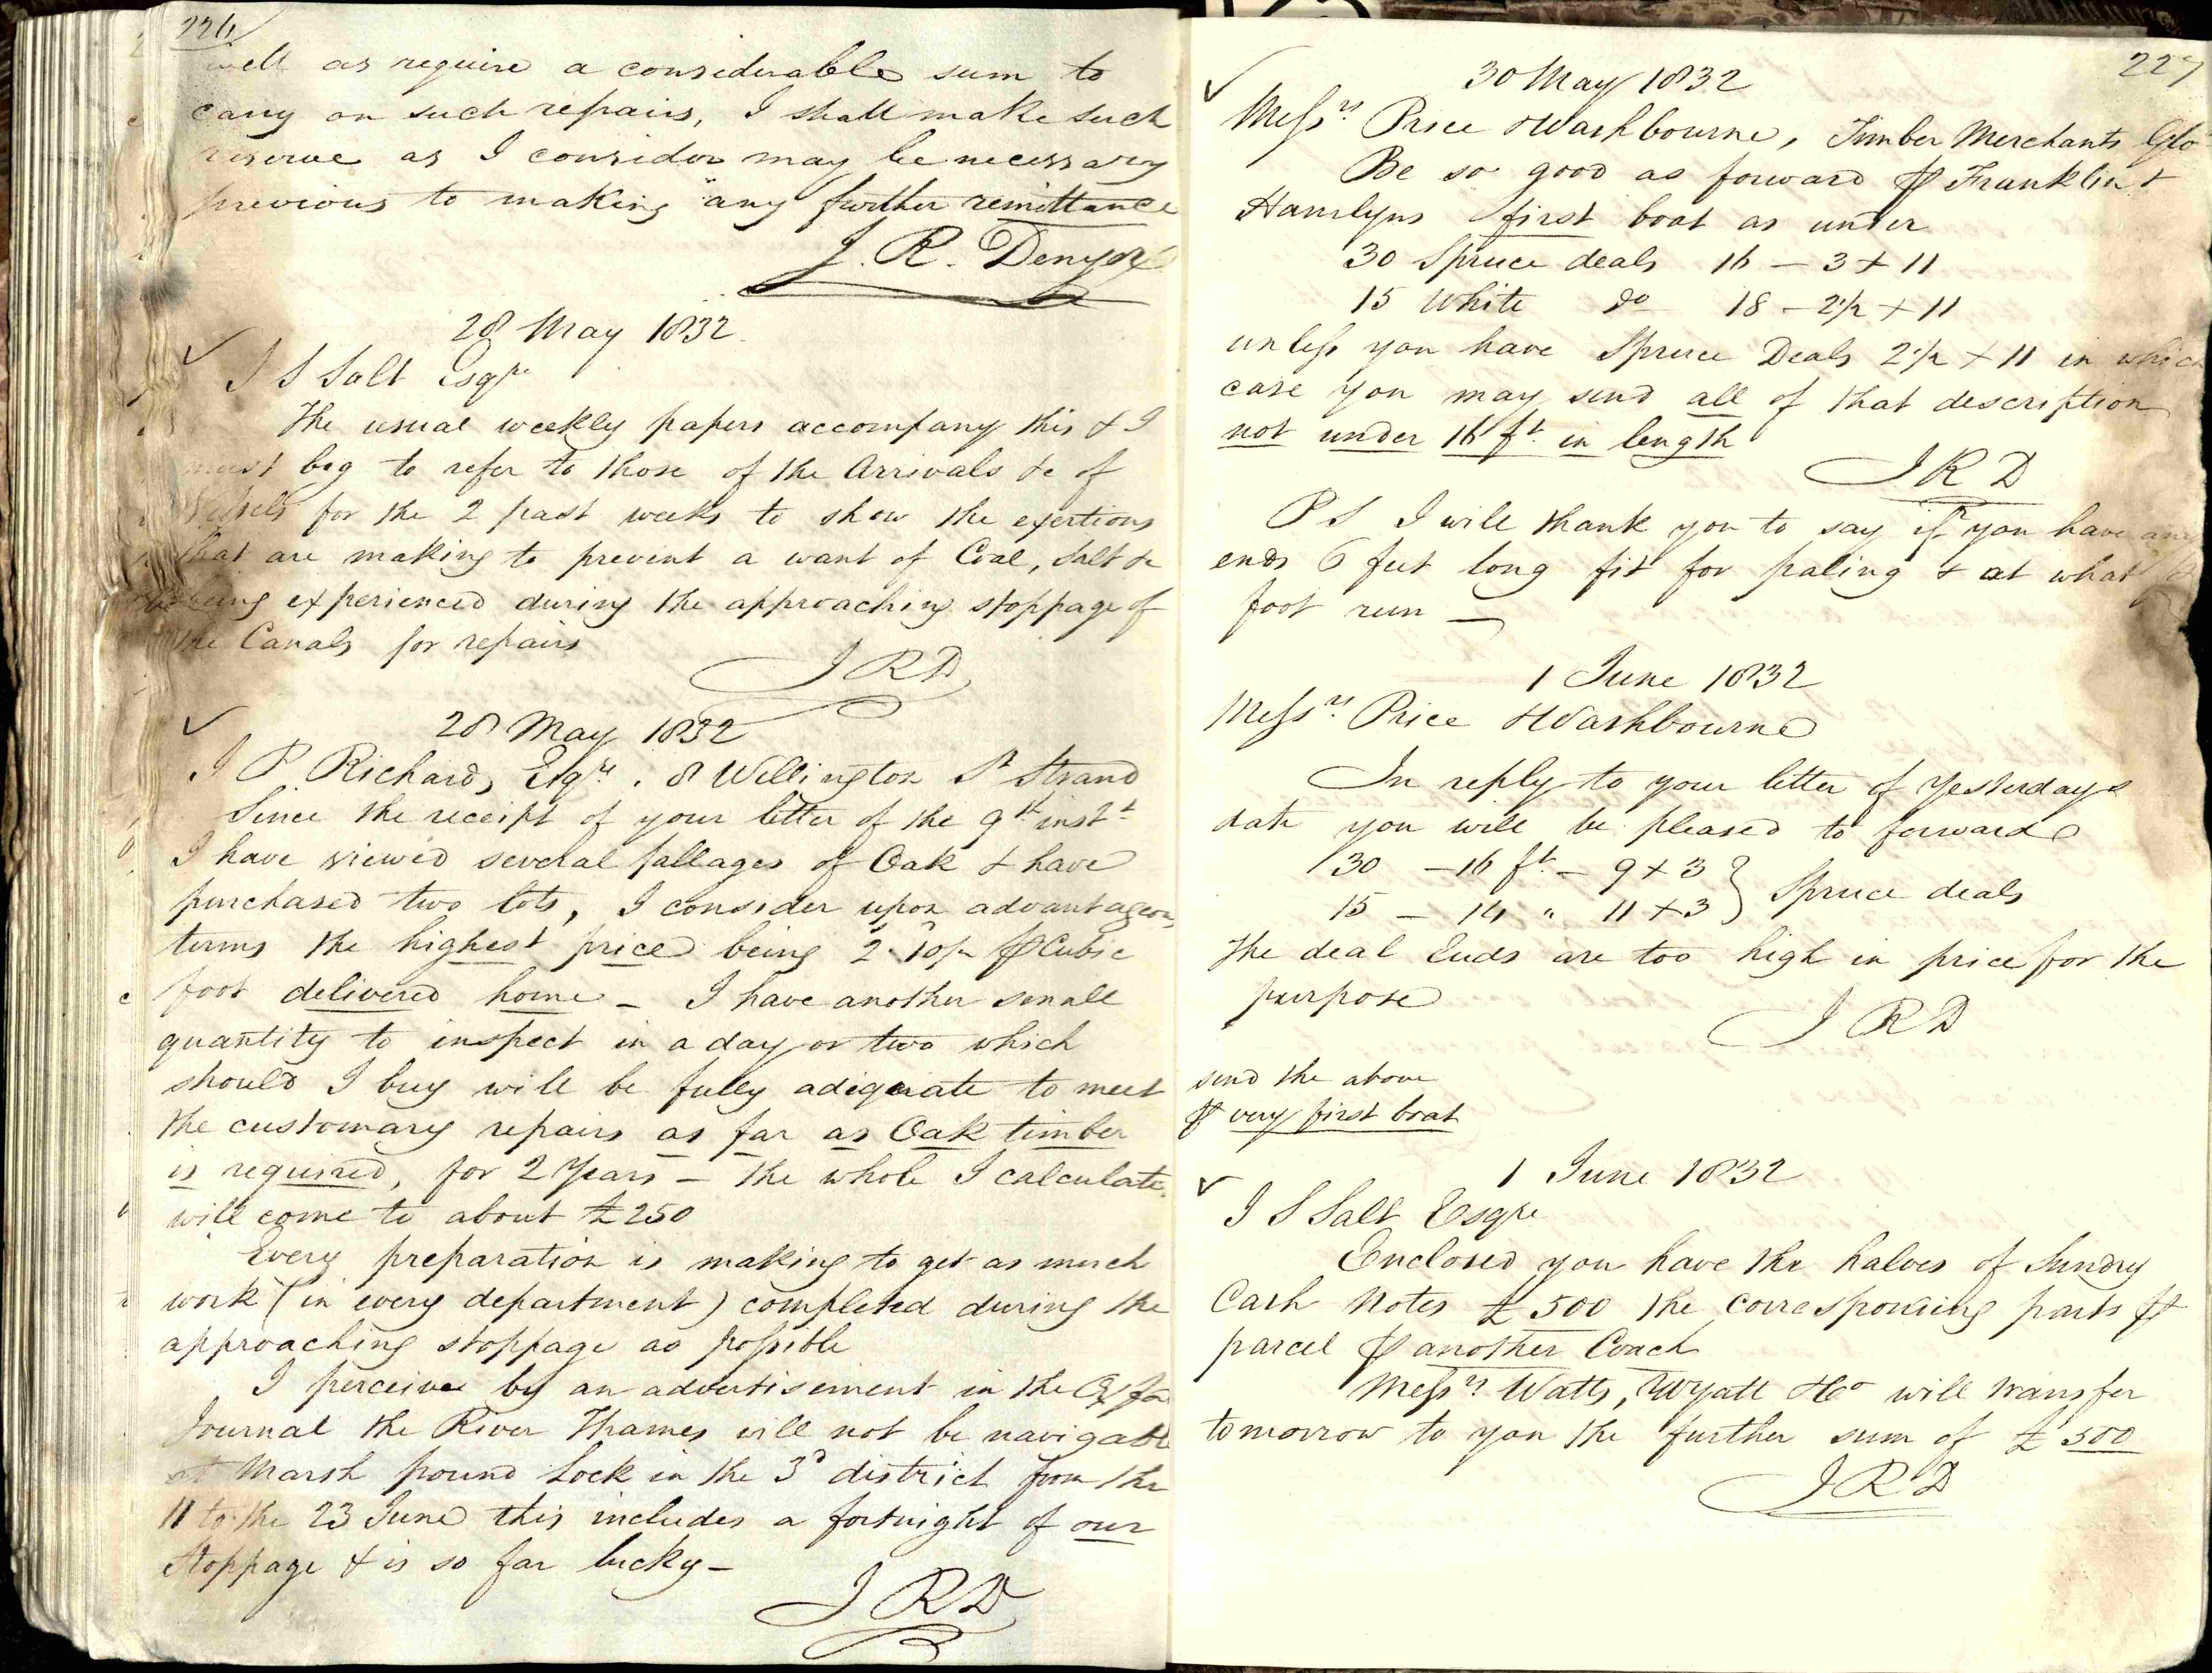 226
well as require a considerable sum to
carry on such repairs, I shall make such
reserve as I consider may be necessary
previous to making any further remittance
J. R. Denyer
28 May 1832
I S Salt Esqre
The usual weekly papers accompany this & I
must beg to refer to those of the Arrivals &c of
Vessels for the 2 past weeks to show the exertions
that are making to prevent a want of Coal, Salt &c
being experienced during the approaching stoppage of
the Canals for repairs
JRD
28 May 1832
I P Richards Esqre. 8 Wellington St Strand
Since the receipt of your letter of the 9th inst
I have viewed several fallages of Oak & have
purchased two lots, I consider upon advantageous
terms the highest price being 2. 10½ ⅌ Cubic
foot delivered home – I have another small
quantity to inspect in a day or two which
should I buy will be fully adiquate to meet
the customary repairs as far as Oak timber
is required, for 2 Years – the whole I calculate
will come to about £250
Every preparation is making to get as much
work (in every department) completed during the
approaching stoppage as possible
I perceive by an advertisement in the
Journal the River Thames will not be navigable
at Marsh pound Lock in the 3d district from the
11 to the 23 June this includes a fortnight of our
stoppage & is so far lucky –
JRD
227
30 May 1832
Messrs Price & Washbourne, Timber Merchants Glo
Be so good as forward ⅌ Franklin &
Hamlyns first boat as under
30 Spruce deals 16 – 3 + 11
15 White do 18 – 2½ + 11
unless you have Spruce Deals 2½ + 11 in which
case you may send all of that description
not under 16 ft. in length
JRD
PS I will thank you to say if you have any
ends 6 feet long fit for paling & at what
foot run –
1 June 1832
Messrs Price & Washbourne
In reply to your letter of Yesterdays
date you will be pleased to forward
30 – 16 ft. – 9 + 3 } Spruce deals
15 – 14 " 11 + 3
The deal Ends are too high in price for the
purpose
JRD
send the above
⅌ very first boat
1 June 1832
I S Salt Esqre
Enclosed you have the halves of Sundry
Cash Notes £500 the corresponding parts ⅌
parcel ⅌ another Coach
Messrs Watts, Wyatt & Co will transfer
tomorrow to you the further sum of £500
JRD